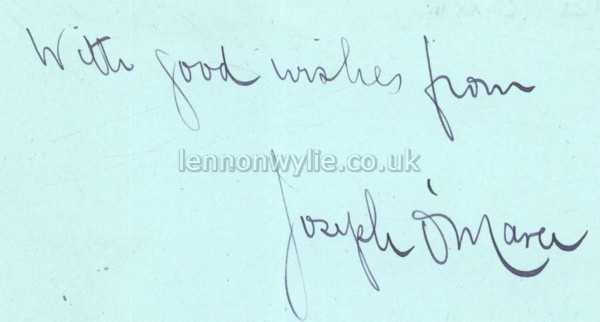 With good wishes from
lennonwylie.co.uk
Joseph O'Mara